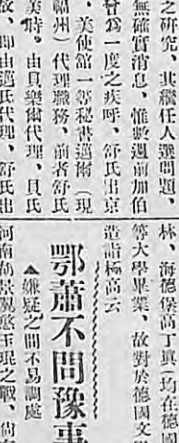 之研究、其繼任人選問題、
無確實消息、惟數週前加伯
曾爲一度之疾呼、舒氏出京
、美使舘一等秘書邁爾（現
福州）代理職務、前者舒氏
美時。由貝樂爾代理、貝氏
故、即由邁氏代理、舒氏出
林、海德堡高丁眞（均在德國
等大學畢業、故對於德國文學
造詣極高云
鄂蕭不問豫事
▲嫌疑之間不易調處
河南
玉琨之戰、尙